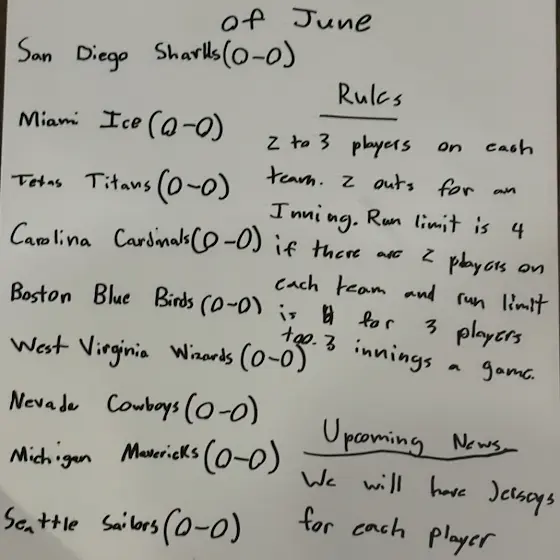 of June
San Diego Sharks(0-0)
Miami Ice(0-0)
Texas Titans(0-0)
Carolina Cardinals(0-0)
Boston Blue Birds(0-0)
West Virginia Wizards(0-0)
Nevada Cowboys(0-0)
Michigan Mavericks(0-0)
Seattle Sailors(0-0)
Rules
2 to 3 players on each
team. 2 outs for an
Inning. Run limit is 4
if there are 2 players on
each team and run limit
is 4 for 3 players
too. 3 innings a game.
Upcoming News
We will have Jerseys
for each player